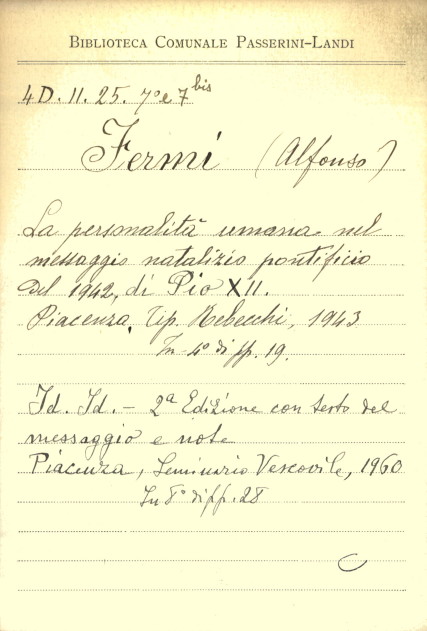 BIBLIOTECA COMUNALE PASSERINI-LANDI
4D. II. 25. 7º e 7 bis
Fermi (Alfonso)
La personalità umana nel
messaggio natalizio pontificio
del 1942, di Pio XII.
Piacenza, Tip. Rebecchi, 1943
In-4º di pp. 19.
Id. Id. - 2ª Edizione con testo del
messaggio e note
Piacenza, Seminario Vescovile, 1960
In 8º di pp. 28
C